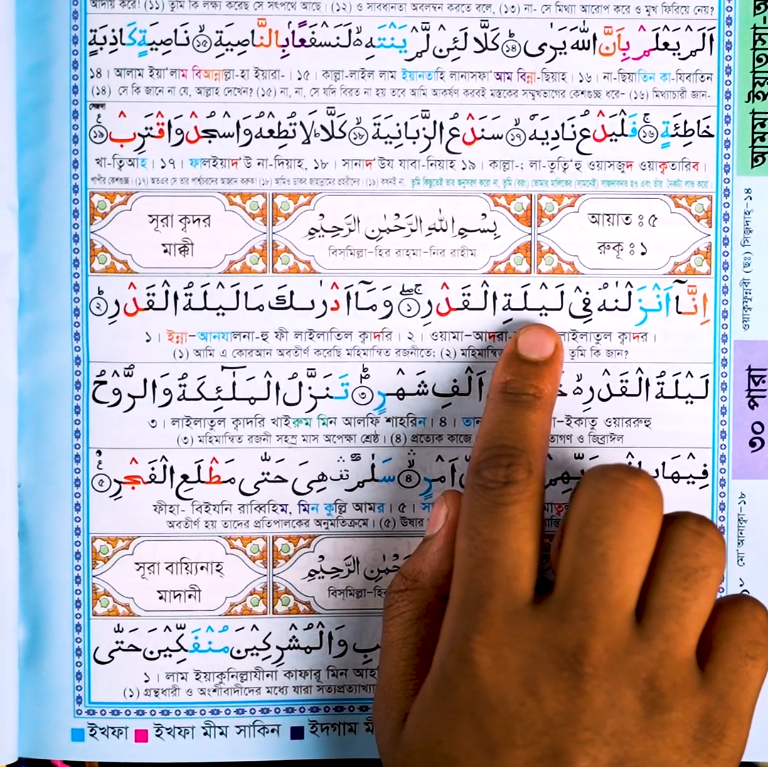 আদায় করে! (১১) তুমি কি লক্ষ্য করেছ সে সৎপথে আছে। (১২) ও সাবধানতা অবলম্বন করতে বলে, (১৩) না- সে মিথ্যা আরোপ করে ও মুখ ফিরিয়ে নেয়?
اَلَمْ يَعْلَمْ بِاَنَّ اللّٰهَ يَرٰى ۝١٤ كَلَّا لَئِنْ لَّمْ يَنْتَهِ ۙ لَنَسْفَعًۢا بِالنَّاصِيَةِ ۝١٥ نَاصِيَةٍ كَاذِبَةٍ
১৪। আলাম ইয়া'লাম বিআন্নাল্লা-হা ইয়ারা-। ১৫। কাল্লা-লাইল লাম ইয়ানতাহি লানাসফা'আম বিন্না-ছিয়াহ। ১৬। না-ছিয়াতিন কা-যিবাতিন
(১৪) সে কি জানে না যে, আল্লাহ দেখেন? (১৫) না, না, সে যদি বিরত না হয় তবে আমি আকর্ষণ করবই মস্তকের সম্মুখভাগের কেশগুচ্ছ ধরে- (১৬) মিথ্যাচারী জ্ঞান-
خَاطِئَةٍ ۝١٦ فَلْيَدْعُ نَادِيَهٗ ۝١٧ سَنَدْعُ الزَّبَانِيَةَ ۝١٨ كَلَّا ؕ لَا تُطِعْهُ وَاسْجُدْ وَاقْتَرِبْ ۝١٩
খা-ত্বিআহ। ১৭। ফালইয়াদ'উ না-দিয়াহ, ১৮। সানাদ'উয যাবা-নিয়াহ ১৯। কাল্লা-; লা-তুত্বি'হু ওয়াসজুদ ওয়াক্বতারিব।
সূরা ক্বদর
মাক্কী
بِسْمِ اللّٰهِ الرَّحْمٰنِ الرَّحِيْمِ
বিস্‌মিল্লা-হির রাহ্‌মা-নির রাহীম
আয়াত : ৫
রুকূ : ১
اِنَّاۤ اَنْزَلْنٰهُ فِىْ لَيْلَةِ الْقَدْرِ ۝١ وَمَاۤ اَدْرٰىكَ مَا لَيْلَةُ الْقَدْرِ ۝٢
১। ইন্না-আনযালনা-হু ফী লাইলাতিল ক্বাদরি। ২। ওয়ামা-আদরা- লাইলাতুল ক্বাদর।
(১) আমি এ কোরআন অবতীর্ণ করেছি মহিমান্বিত রজনীতে; (২) মহিমান্বিত তুমি কি জান?
لَيْلَةُ الْقَدْرِ اَلْفِ شَهْرٍ ۝٣ تَنَزَّلُ الْمَلٰٓئِكَةُ وَالرُّوْحُ
৩। লাইলাতুল ক্বাদরি খাইরুম মিন আলফি শাহরিন। ৪। -ইকাতু ওয়াররূহু
(৩) মহিমান্বিত রজনী সহস্র মাস অপেক্ষা শ্রেষ্ঠ। (৪) প্রত্যেক কাজে তাগণ ও জিব্রাঈল
فِيْهَا اَمْرٍ ۝٤ سَلٰمٌ هِىَ حَتّٰى مَطْلَعِ الْفَجْرِ ۝٥
ফীহা- বিইযনি রাব্বিহিম, মিন কুল্লি আমর। ৫।
অবতীর্ণ হয় তাদের প্রতিপালকের অনুমতিক্রমে। (৫)
সূরা বায়্যিনাহ্
মাদানী
الرَّحْمٰنِ الرَّحِيْمِ
বিস্‌মিল্লা-হির
وَالْمُشْرِكِيْنَ مُنْفَكِّيْنَ حَتّٰى
১। লাম ইয়াকুনিল্লাযীনা কাফারূ মিন আহ
(১) গ্রন্থধারী ও অংশীবাদীদের মধ্যে যারা সত্যপ্রত্যাখ্যা
ইখফা ইখফা মীম সাকিন ইদগাম মী
৩০ পারা